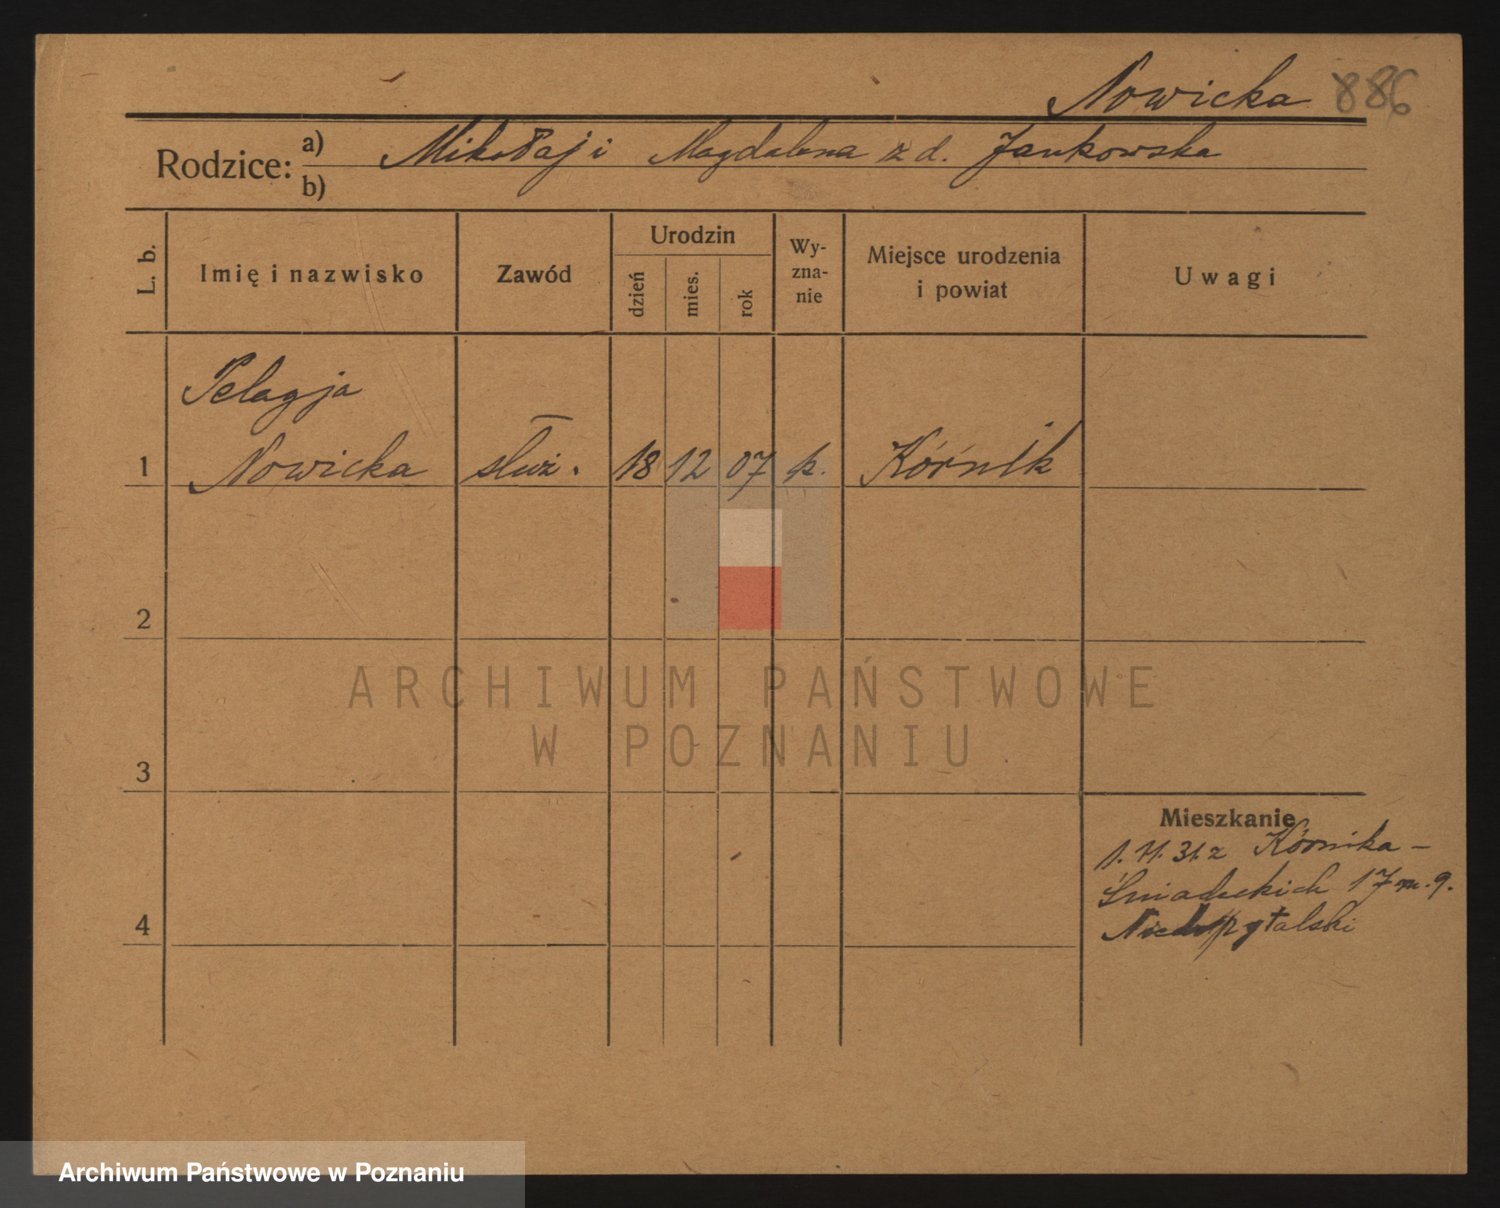 Nowicka 886
Rodzice: a) Mikołaj i Magdalena z d. Jankowska
b)
L. b.
Imię i nazwisko
Zawód
Urodzin
dzień
mies.
rok
Wy-
zna-
nie
Miejsce urodzenia
i powiat
Uwagi
Pelagja
1 Nowicka służ. 18 12 07 k. Kórnik
2
3
4
Mieszkanie
1. 11. 31. z Kórnika –
Śniadeckich 17 m. 9.
ARCHIWUM PAŃSTWOWE
W POZNANIU
Archiwum Państwowe w Poznaniu